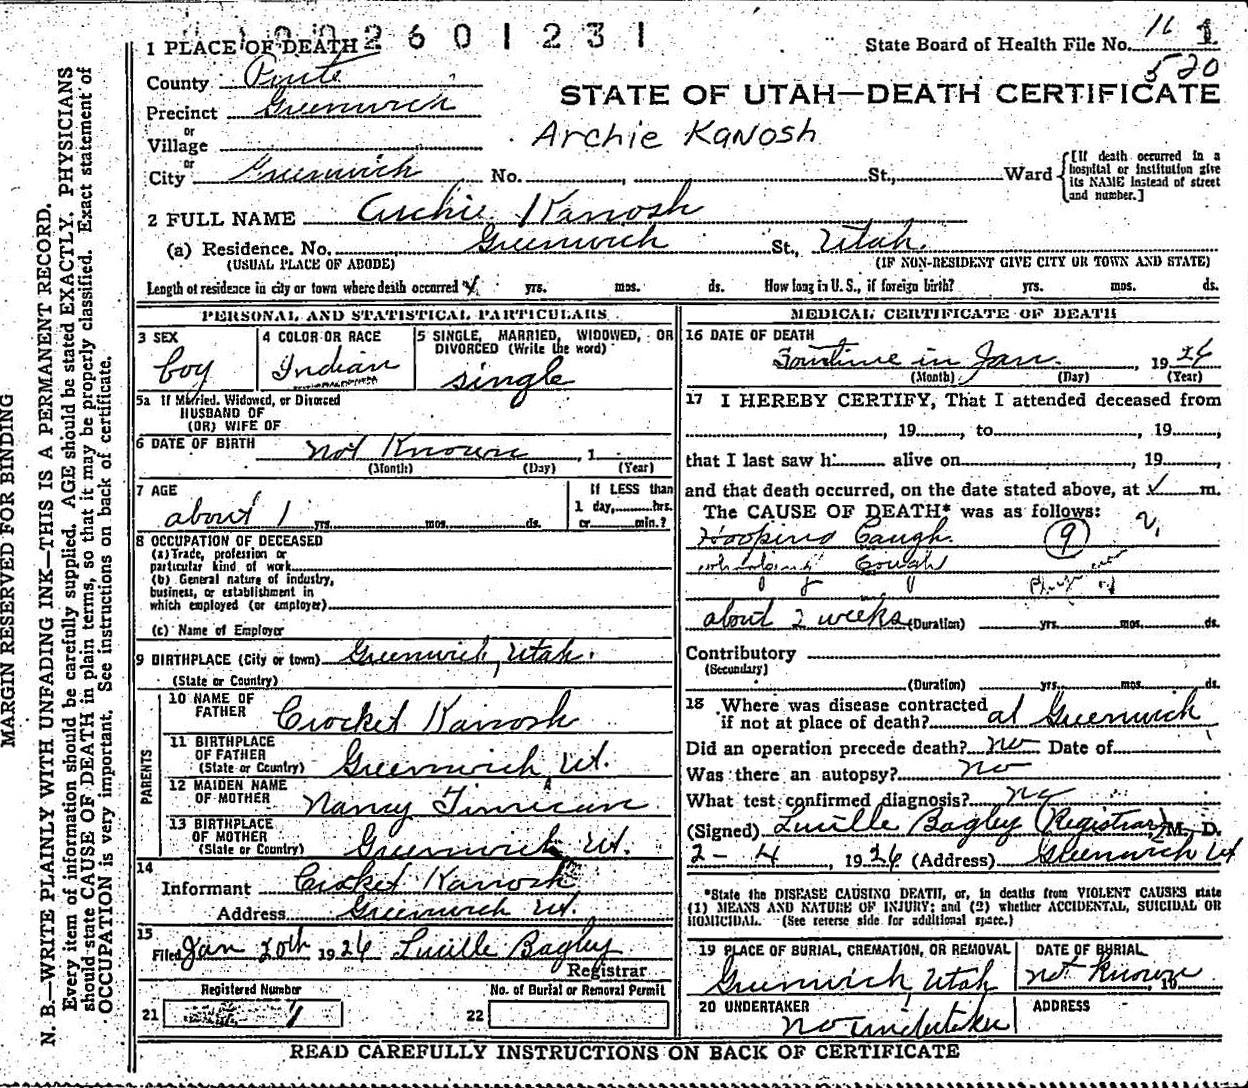 2 6 0 1 2 3 1
1 PLACE OF DEATH
State Board of Health File No. 16 1
520
County Piute
STATE OF UTAH—DEATH CERTIFICATE
Precinct Greenwich
or
Village
Archie Kanosh
or
City Greenwich No. , St., Ward {[If death occurred in a hospital or institution give its NAME instead of street and number.]
2 FULL NAME Archie Kanosh
(a) Residence. No. Greenwich St., Utah.
(USUAL PLACE OF ABODE) (IF NON-RESIDENT GIVE CITY OR TOWN AND STATE)
Length of residence in city or town where death occurred yrs. mos. ds. How long in U. S., if foreign birth? yrs. mos. ds.
PERSONAL AND STATISTICAL PARTICULARS
3 SEX
boy
4 COLOR OR RACE
Indian
5 SINGLE, MARRIED, WIDOWED, OR DIVORCED (Write the word)
single
5a If Married, Widowed, or Divorced
HUSBAND OF
(OR) WIFE OF
6 DATE OF BIRTH not Known , 1
(Month) (Day) (Year)
7 AGE
about 1 yrs. mos. ds.
If LESS than
1 day, hrs.
or min.?
8 OCCUPATION OF DECEASED
(a) Trade, profession or
particular kind of work
(b) General nature of industry,
business, or establishment in
which employed (or employer)
(c) Name of Employer
9 BIRTHPLACE (City or town) Greenwich, Utah.
(State or Country)
PARENTS
10 NAME OF
FATHER Crocket Kanosh
11 BIRTHPLACE
OF FATHER
(State or Country) Greenwich Ut.
12 MAIDEN NAME
OF MOTHER Nancy Timican
13 BIRTHPLACE
OF MOTHER
(State or Country) Greenwich Ut.
14
Informant Crocket Kanosh
Address Greenwich Ut.
15
Filed Jan 20th 1926 Lucille Bagley
Registrar
Registered Number
21 1
No. of Burial or Removal Permit
22
MEDICAL CERTIFICATE OF DEATH
16 DATE OF DEATH
Somtime in Jan. , 1926
(Month) (Day) (Year)
17 I HEREBY CERTIFY, That I attended deceased from
, 19 , to , 19 ,
that I last saw h alive on , 19 ,
and that death occurred, on the date stated above, at m.
The CAUSE OF DEATH* was as follows:
Hooping Caugh. 9
whooping cough
about 2 weeks (Duration) yrs. mos. ds.
Contributory
(Secondary)
(Duration) yrs. mos. ds.
18 Where was disease contracted
if not at place of death? at Greenwich
Did an operation precede death? no Date of
Was there an autopsy? no
What test confirmed diagnosis? no
(Signed) Lucille Bagley (Registrar) M. D.
2 - 4 , 1926 (Address) Greenwich Ut
*State the DISEASE CAUSING DEATH, or, in deaths from VIOLENT CAUSES state
(1) MEANS AND NATURE OF INJURY; and (2) whether ACCIDENTAL, SUICIDAL OR
HOMICIDAL. (See reverse side for additional space.)
19 PLACE OF BURIAL, CREMATION, OR REMOVAL
Greenwich, Utah
DATE OF BURIAL
not known , 19
20 UNDERTAKER
no undertaker
ADDRESS
READ CAREFULLY INSTRUCTIONS ON BACK OF CERTIFICATE
MARGIN RESERVED FOR BINDING
N. B.—WRITE PLAINLY WITH UNFADING INK—THIS IS A PERMANENT RECORD.
Every item of information should be carefully supplied. AGE should be stated EXACTLY. PHYSICIANS
should state CAUSE OF DEATH in plain terms, so that it may be properly classified. Exact statement of
OCCUPATION is very important. See instructions on back of certificate.